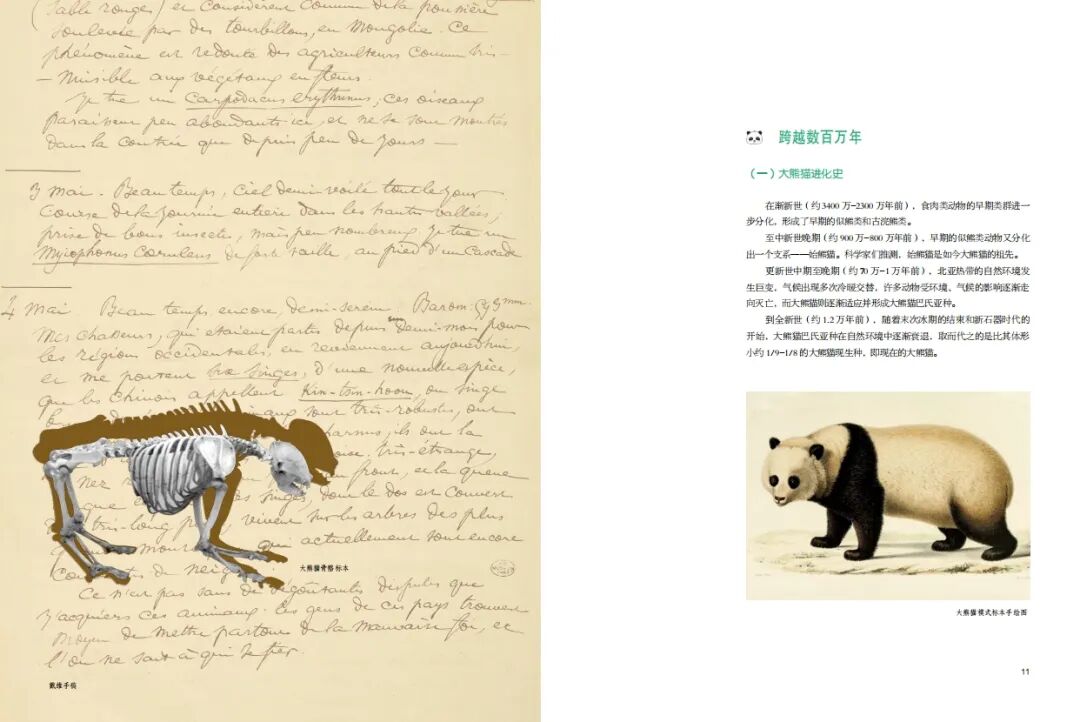 (sable rouges) et considèrent comme de la poussière
soulevée par des tourbillons, en Mongolie. Ce
phénomène est redouté des agriculteurs comme très-
nuisible aux végétaux en fleurs.
Je tue un Carpodacus erythrinus; ces oiseaux
paraissent peu abondants ici, et ne se sont montrés
dans la contrée que depuis peu de jours —
3 Mai. Beau temps, ciel demi-voilé tout le jour
Course de la journée entière dans les hautes vallées;
prise de bons insectes, mais peu nombreux. Je tue un
Myiophonus Cœruleus de forte taille, au pied d'une Cascade
4 Mai. Beau temps, encore, demi-serein. Barom.
Mes chasseurs, qui étaient partis depuis demi-mois pour
les régions occidentales, en reviennent aujourd'hui,
et me portent six singes, d'une nouvelle espèce,
que les Chinois appellent Kin-tsin-heou, ou singe
sont très-robustes, ont
ils ont la
très-étrange,
nez front, et la queue
que singes, dont le dos est couvert
très-long vivent sur les arbres des plus
actuellement sont encore
de neige
大熊猫骨骼标本
Ce n'est pas sans de dégoûtantes disputes que
j'acquiers ces animaux. Les gens de ces pays trouvent
moyen de mettre partout de la mauvaise foi, et
l'on ne sait à qui se fier.
戴维手稿
跨越数百万年
（一）大熊猫进化史
在渐新世（约3400万-2300万年前），食肉类动物的早期类群进一
步分化，形成了早期的似熊类和古浣熊类。
至中新世晚期（约900万-800万年前），早期的似熊类动物又分化
出一个支系——始熊猫。科学家们推测，始熊猫是如今大熊猫的祖先。
更新世中期至晚期（约70万-1万年前），北亚热带的自然环境发
生巨变，气候出现多次冷暖交替，许多动物受环境、气候的影响逐渐走
向灭亡，而大熊猫则逐渐适应并形成大熊猫巴氏亚种。
到全新世（约1.2万年前），随着末次冰期的结束和新石器时代的
开始，大熊猫巴氏亚种在自然环境中逐渐衰退，取而代之的是比其体形
小约1/9-1/8的大熊猫现生种，即现在的大熊猫。
大熊猫模式标本手绘图
11